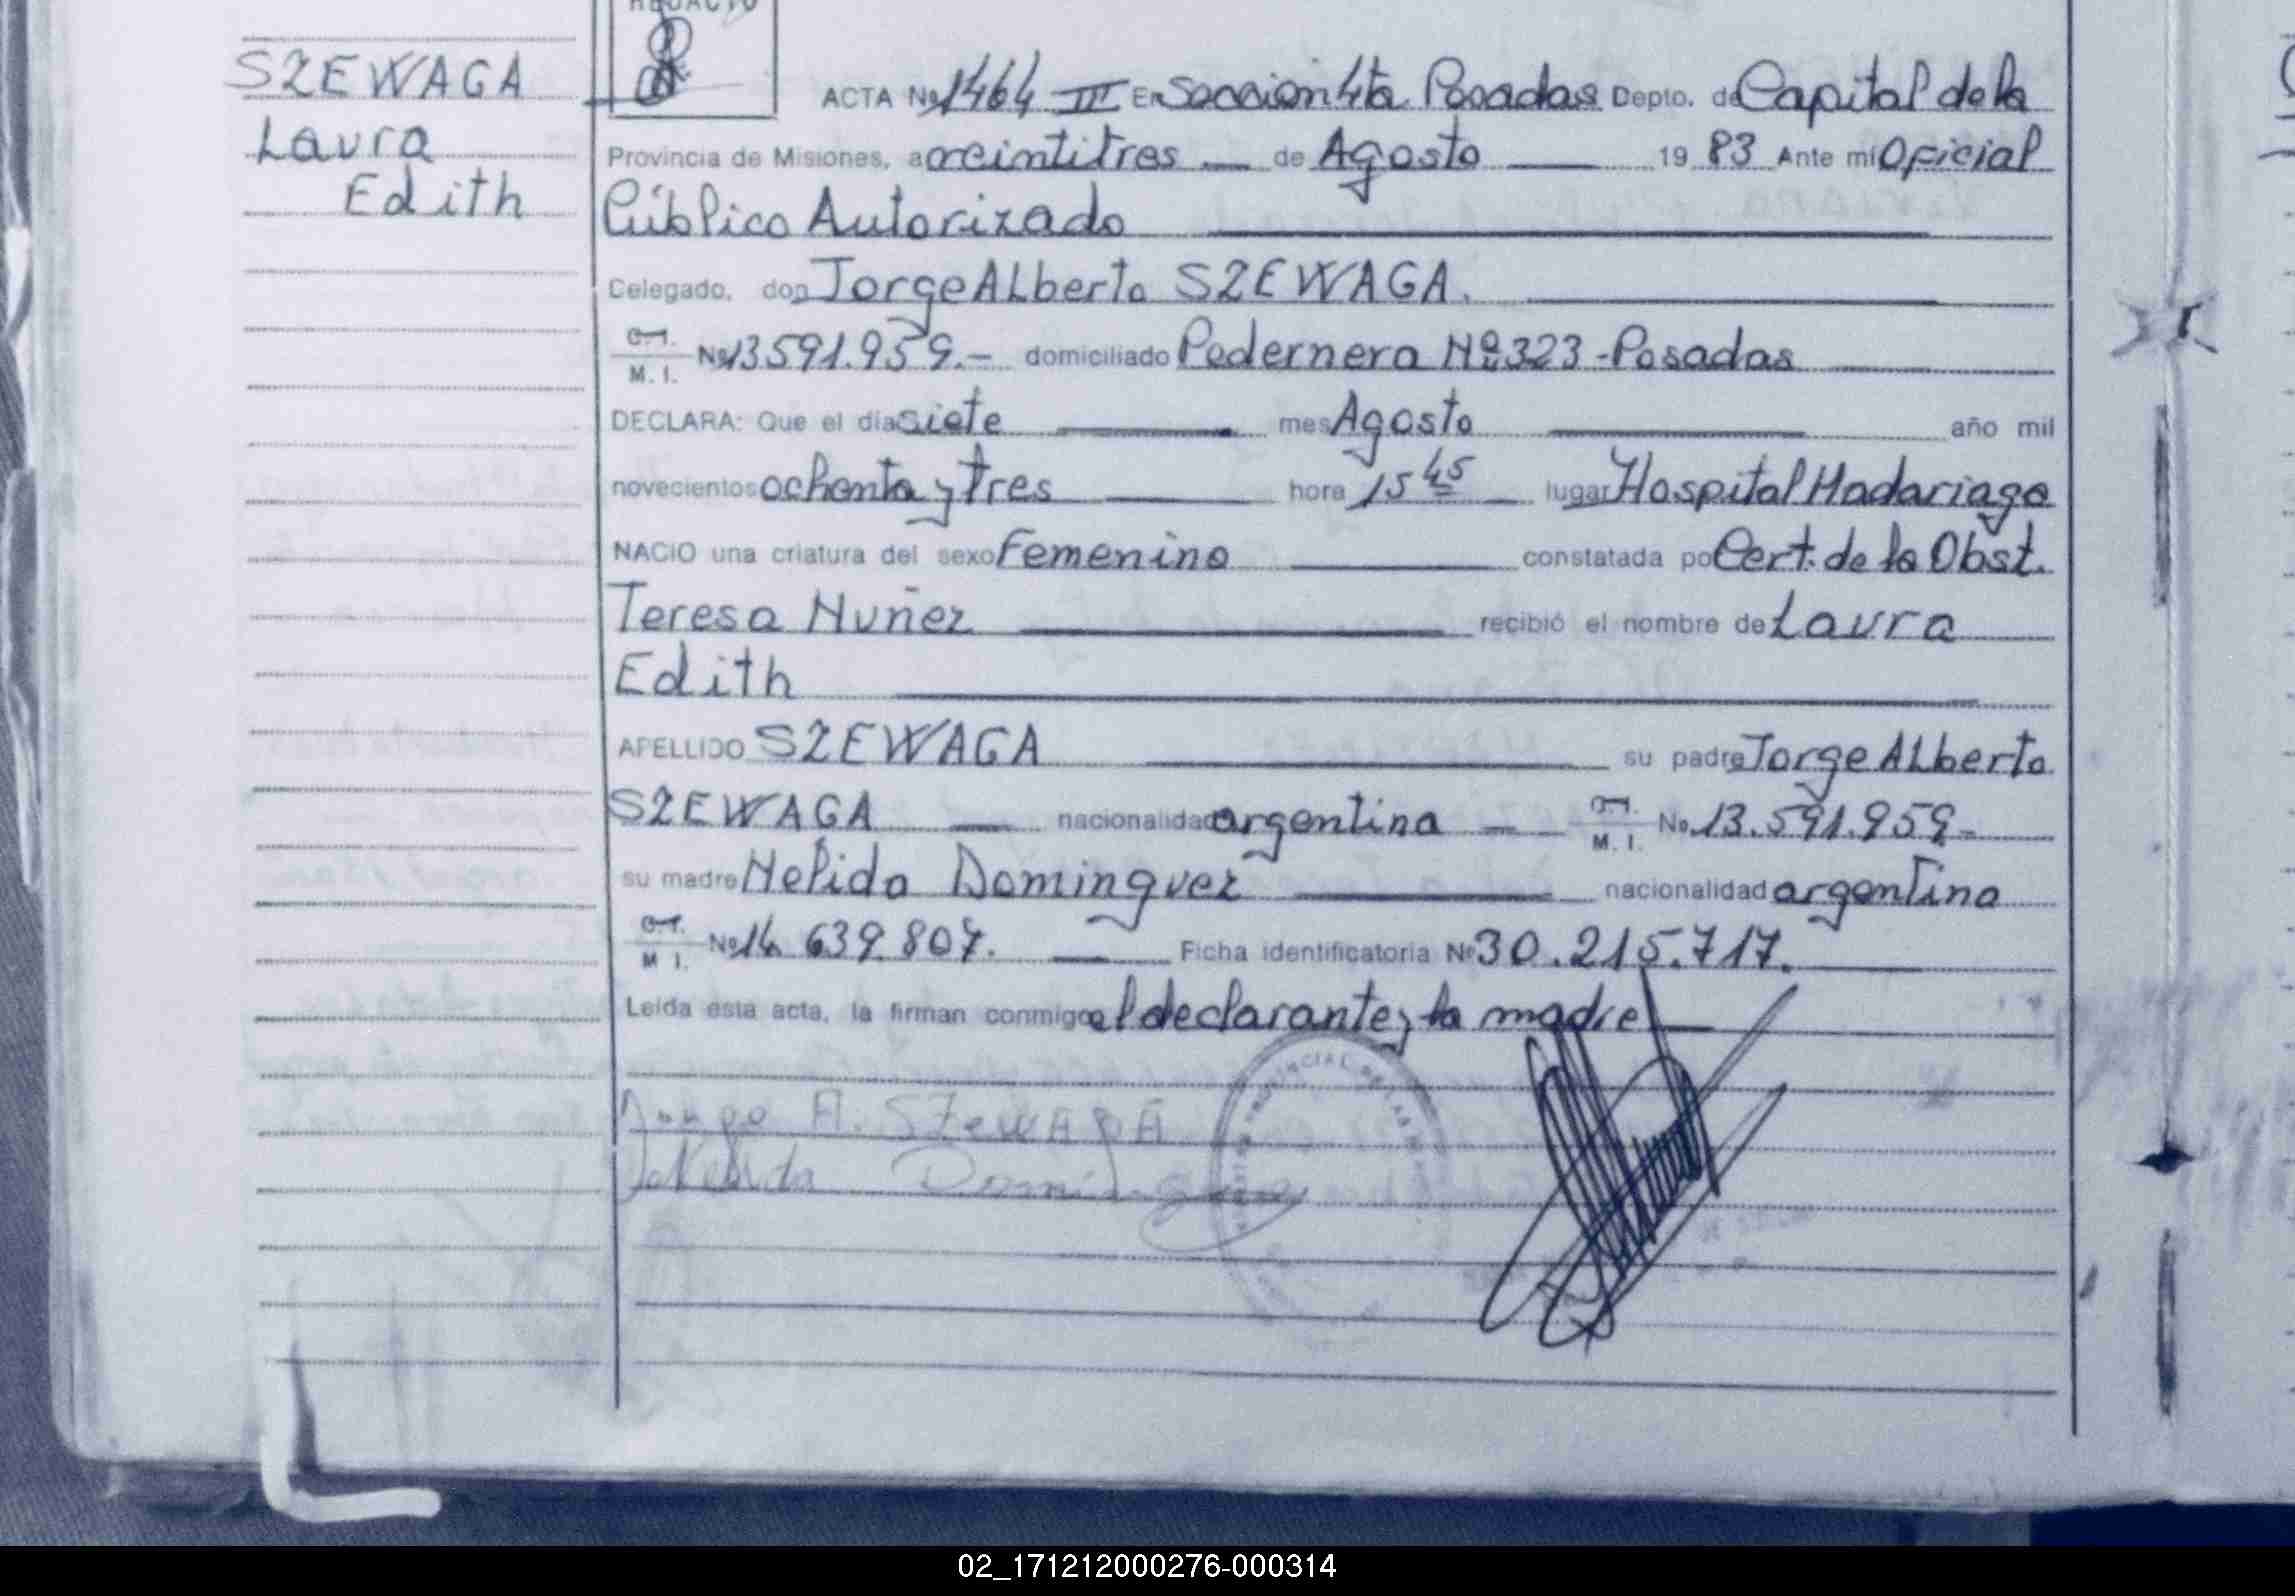 SZEWAGA
Laura
Edith
REDACTO
ACTA No 1464 III En Seccion 4ta Posadas Depto. de Capital de la
Provincia de Misiones, a veintitres de Agosto 19 83 Ante mi Oficial
Público Autorizado
Celegado, don Jorge ALberto SZEWAGA.
M. I. No 13591.959.- domiciliado Pedernera Nº 323 - Posadas
DECLARA: Que el dia siete mes Agosto año mil
novecientos ochenta y tres hora 15 45 lugar Hospital Madariaga
NACIO una criatura del sexo Femenino constatada po Cert. de la Obst.
Teresa Nuñez recibió el nombre de Laura
Edith
APELLIDO SZEWAGA su padre Jorge ALberto
SZEWAGA nacionalidad argentina M. I. No 13.591.959-
su madre Nelida Dominguez nacionalidad argentina
M I. No 14 639.807. Ficha identificatoria No 30.215.717.
Leida esta acta, la firman conmigo el declarante y la madre
Jorge A. SZEWAGA
Nelida Dominguez
02_171212000276-000314